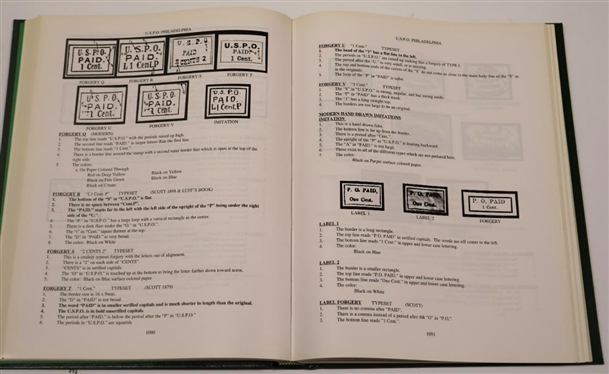 U.S.P.O. PHILADELPHIA
U.S.P.O.
PAID.
1 Cent.
U.S.P.O.
PAID.
L1 Cent.P
U.S.P.O.
PAID
2 CENTS 2
U.S.P.O.
PAID
1 Cent.
FORGERY Q FORGERY R FORGERY S FORGERY T
U.S.P.O.
PAID.
1 Cent.
U.S.P.O.
PAID
1 Cent.
U.S.P.O.
PAID.
L1 Cent.P
FORGERY U FORGERY V IMITATION
FORGERY Q (MODERN)
1. The top line reads "U.S.P.O." with the periods raised up high.
2. The second line reads "PAID." in larger letters than the first line.
3. The bottom line reads "1 Cent."
4. There is a border line around the stamp with a second outer border line which is open at the top of the
right side.
5. The colors:
a. On Paper Colored Through
Red on Deep Yellow Black on Yellow
Black on Pale Green Black on Blue
Black on Cream
FORGERY R "L1 Cent. P" TYPESET (SCOTT 1898 & LUFF'S BOOK)
1. The bottom of the "S" in "U.S.P.O." is flat.
2. There is no space between "Cent.P".
3. The "PAID." starts far to the left with the left side of the upright of the "P" being under the right
side of the "U."
4. The "P" in "U.S.P.O." has a large loop with a vertical rectangle in the center.
5. There is a dark flaw under the "O." in "U.S.P.O."
6. The "t" in "Cent." tapers thinner at the top.
7. The "D" in "PAID" is very broad.
8. The color: Black on White
FORGERY S "2 CENTS 2" TYPESET
1. This is a crudely typeset forgery with the letters out of alignment.
2. There is a "2" on each side of "CENTS".
3. "CENTS" is in serified capitals.
4. The "O" in "U.S.P.O." is touched up at the bottom to bring the letter farther down toward norm.
5. The color: Black on Blue surface colored paper
FORGERY T "1 Cent." TYPESET (SCOTT 1879)
1. The border size is 16 x 9mm.
2. The "D" in "PAID" is not broad.
3. The word "PAID" is in smaller serified capitals and is much shorter in length than the original.
4. The U.S.P.O. is in bold unserified capitals.
5. The period after "PAID." is below the period after the "P" in "U.S.P.O."
6. The periods in "U.S.P.O." are squarish
1090
U.S.P.O. PHILADELPHIA
FORGERY U "1 Cent." TYPESET
1. The head of the "1" has a flat line to the left.
2. The periods in "U.S.P.O." are raised up making this a forgery of TYPE I.
3. The period after the "U." is very small, or is missing.
4. The top and bottom ends of the curves of the "S" do not come as close to the main body line of the "S" as
in the originals.
5. The loop of the "P" in "PAID" is taller.
FORGERY V "1 Cent." TYPESET
2. The "P" in "PAID" has a thick stand.
3. The "1" has a long straight top.
4. The borders are too large to be an original.
MODERN HAND DRAWN IMITATIONS
IMITATION
1. This is a hand drawn fake.
2. The bottom line is far up from the border.
3. There is a period after "Cent."
4. The upright of the "P" in "U.S.P.O." is leaning backward.
5. The "A" in "PAID" is too large.
7. The color:
Black on Purple surface colored paper
P. O. PAID,
One Cent.
P. O. PAID,
One Cent.
P. O. PAID
1 Cent.
LABEL 1 LABEL 2 FORGERY
LABEL 1
1. The border is a long rectangle.
2. The top line reads "P.O. PAID," in serified capitals. The words set off center to the left.
3. The bottom line reads "1 Cent." in upper and lower case lettering.
4. The color:
Black on Blue
LABEL 2
1. The border is a smaller rectangle.
2. The top line reads "P.O. PAID," in upper and lower case lettering.
3. The bottom line reads "One Cent" in upper and lower case lettering.
4. The color:
Black on White
LABEL FORGERY TYPESET (SCOTT)
1. There is no comma after "PAID".
2. There is a comma instead of a period after the "O" in "P.O."
3. The bottom line reads "1 Cent."
1091